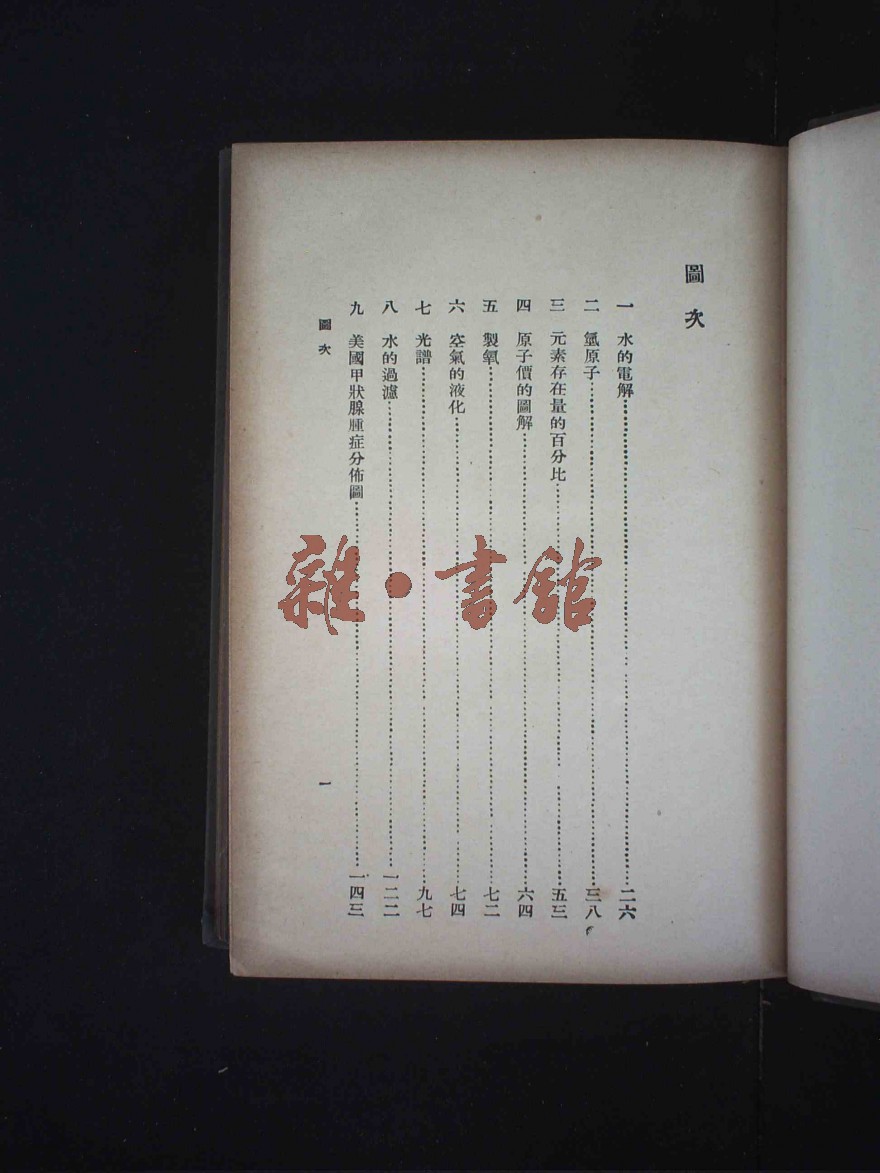 圖次
一 水的電解……二六
二 氫原子……三八
三 元素存在量的百分比……五三
四 原子價的圖解……六四
五 製氧……七二
六 空氣的液化……七四
七 光譜……九七
八 水的過濾……一二二
九 美國甲狀腺腫症分佈圖……一四三
圖次 一
雜·書館